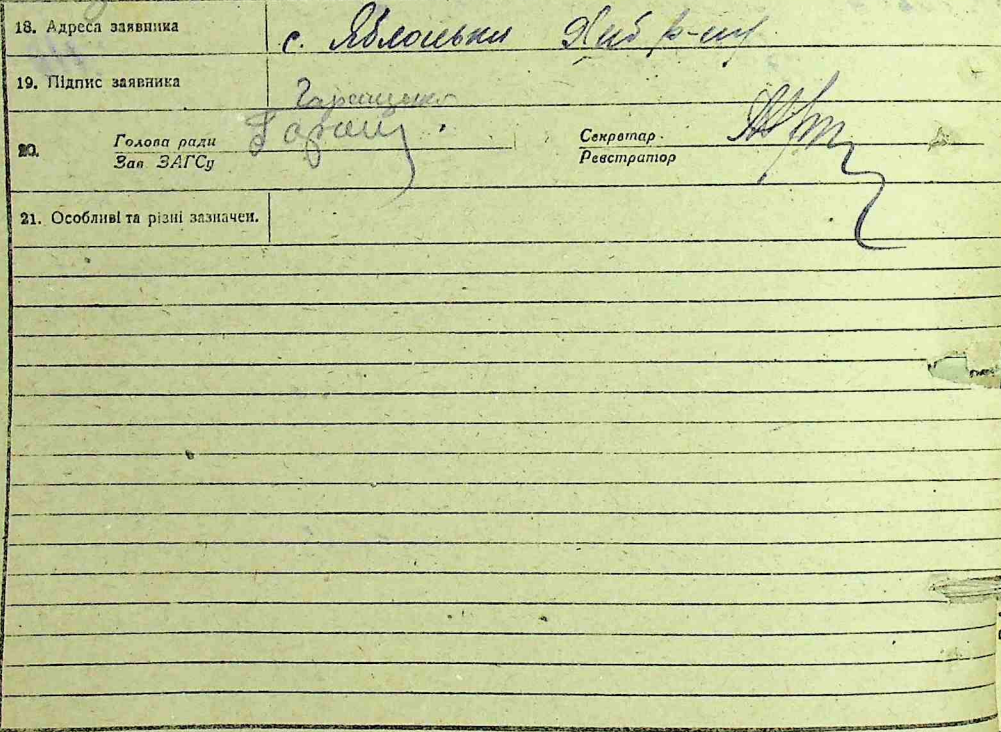 18. Адреса заявника с. Яблоньки
19. Підпис заявника Гаращенко
20. Голова ради
Зав ЗАГСу
Секретар
Реєстратор
21. Особливі та різні зазначен.